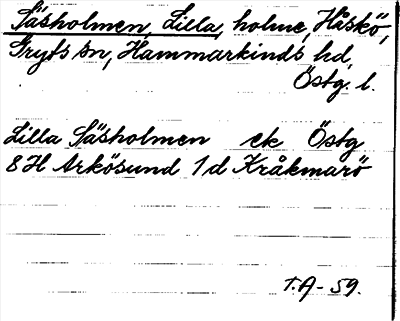 Säsholmen, Lilla, holme, Håskö,
Gryts sn, Hammarkinds hd,
Östg. l.
Lilla Säsholmen ek Östg
8H Arkösund 1d Kråkmarö
T.A-59.